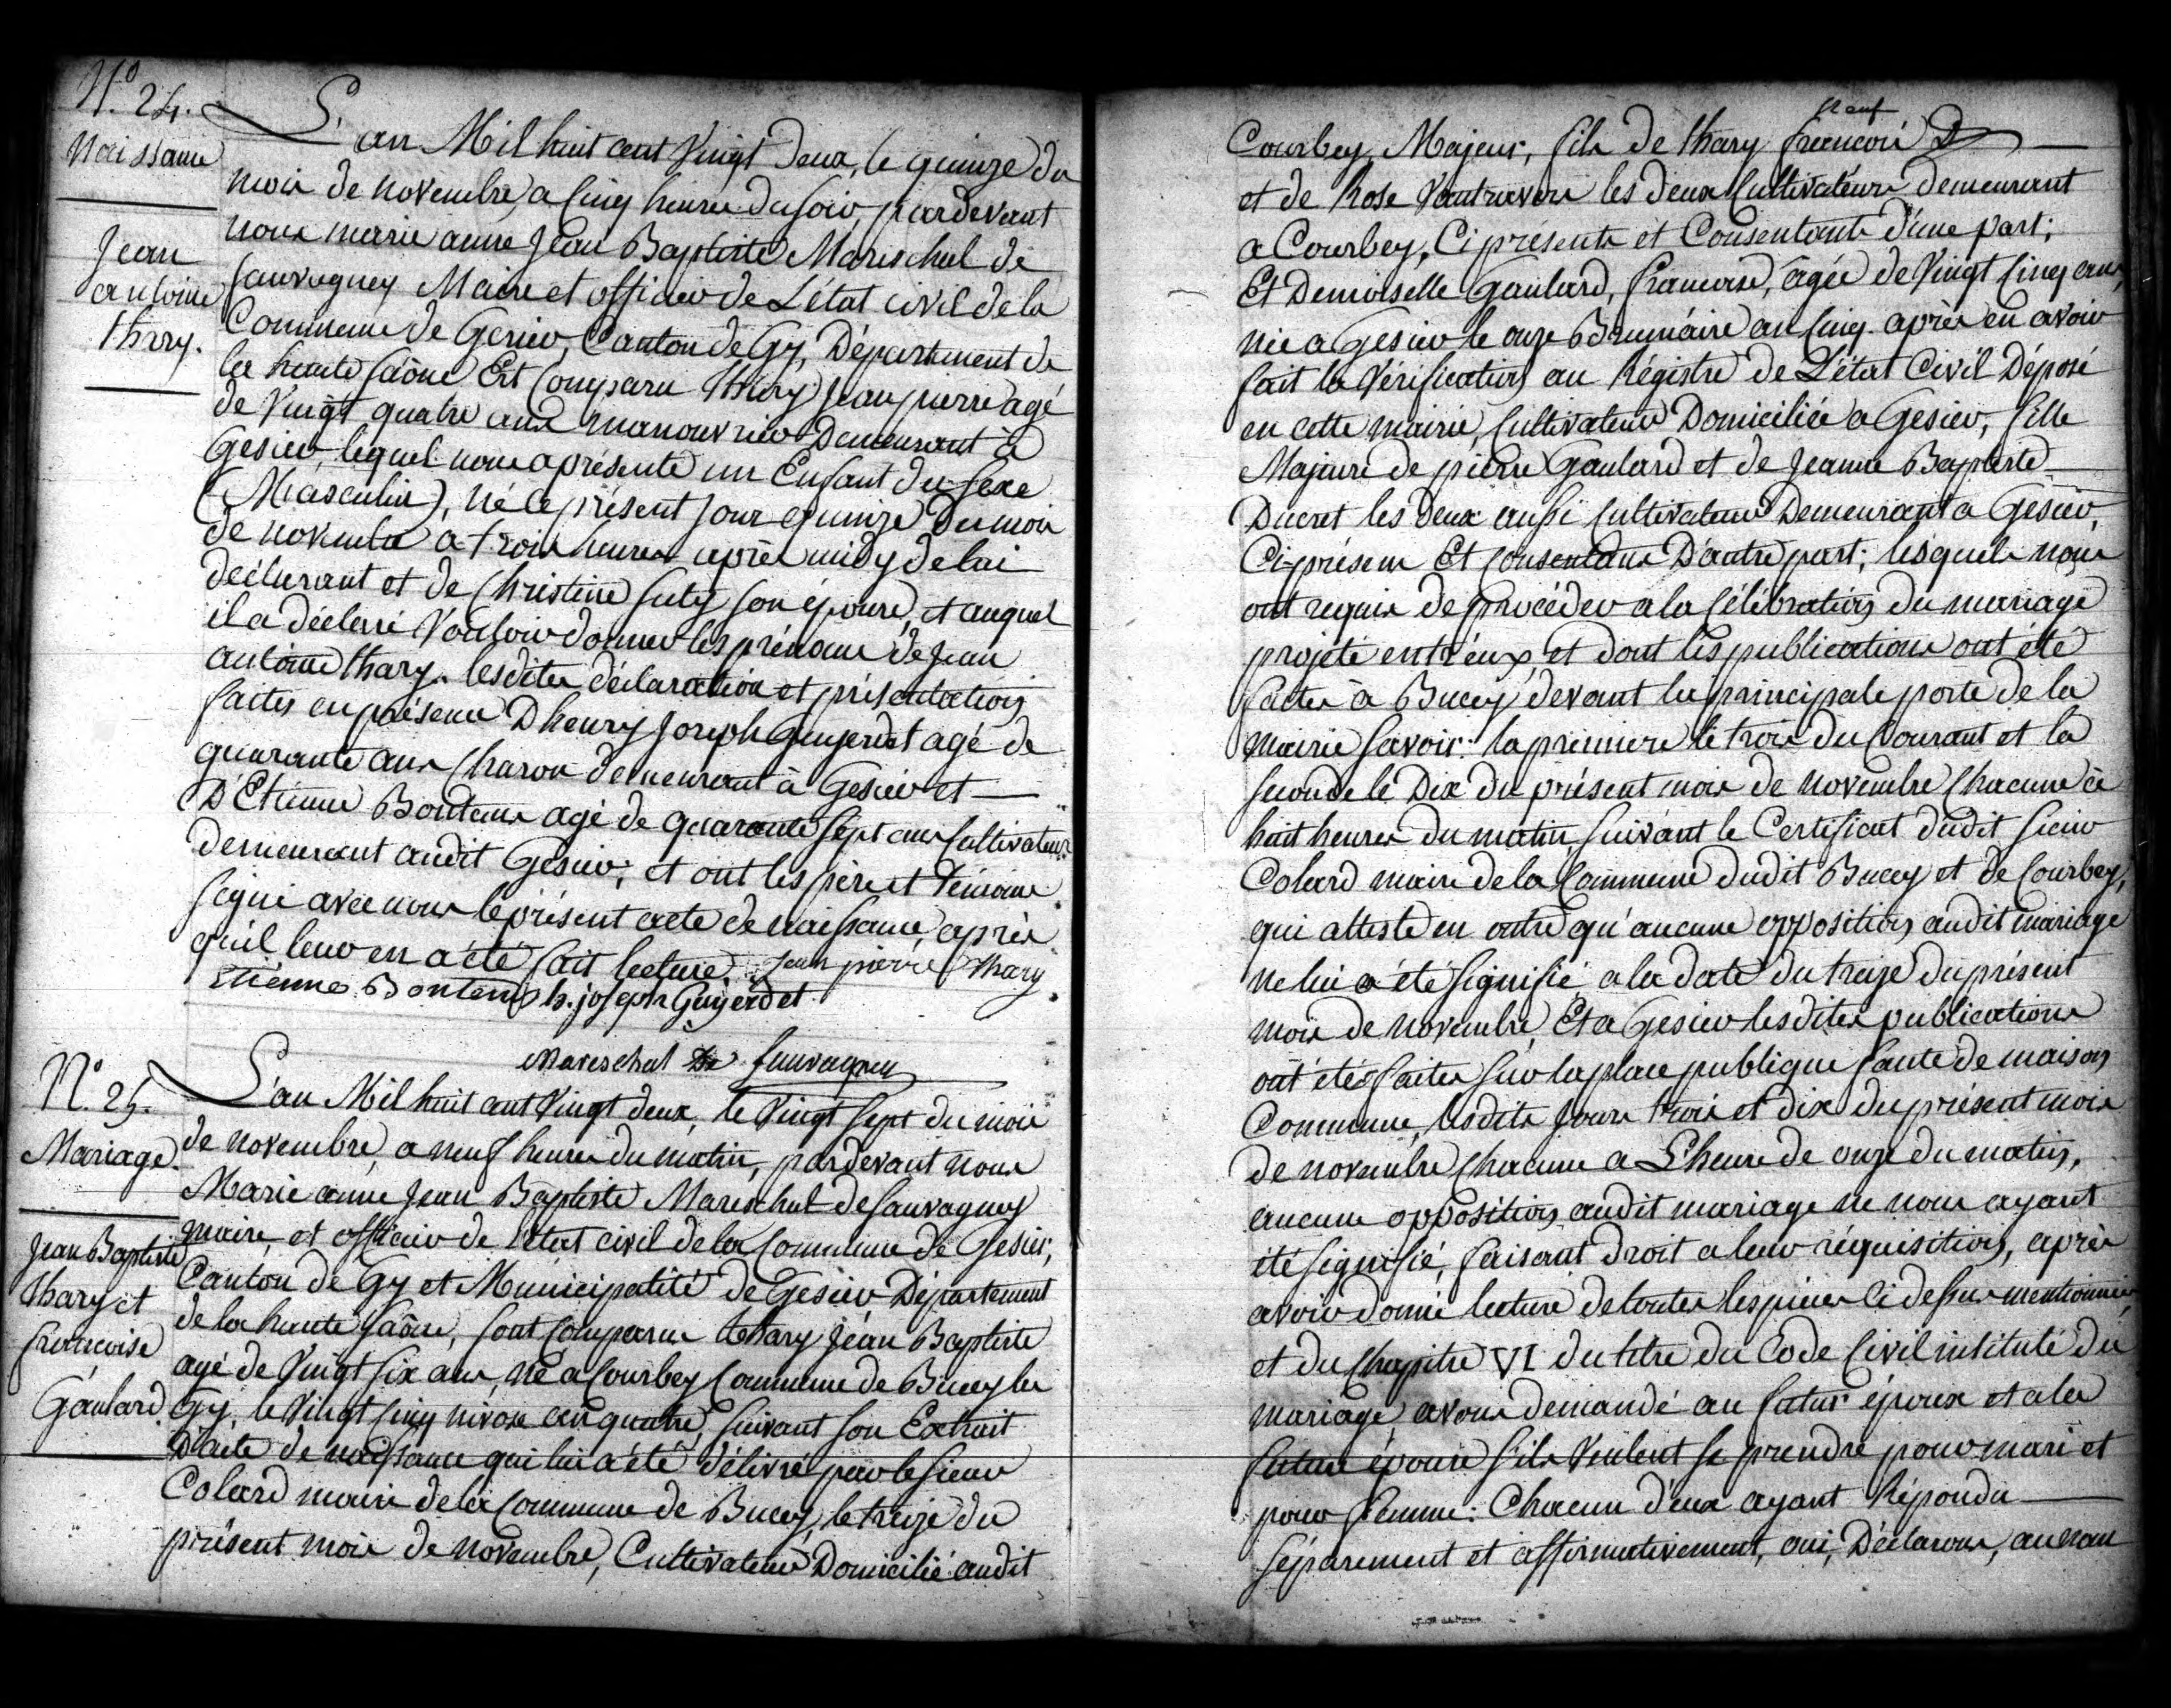 N.° 24.
Naissance
Jean
antoine
thary.
L'an Mil huit cent Vingt deux, le quinze du
mois de novembre, a cinq heures du soir, pardevant
nous marie anne Jean Baptiste Mareschal de
sauvagney Maire et officier de L'état civil de la
Commune de Gesier, Canton de Gy, Département de
la haute saône Est Comparu thary Jean pierre agé
de Vingt quatre ans manouvrier Demeurant à
Gesier, lequel nous a présenté un Enfant du sexe
(Masculin), né le présent jour quinze Du mois
de novembre a trois heures après midy de lui
déclarant et de Christine suty son épouse, et auquel
il a déclaré Vouloir donner les prénoms de Jean
antoine thary. lesdites déclaration et présentation
faites en présence D'henry Joseph Guyerdet agé de
quarante ans Charon demeurant à Gesier et
D'Etienne Bontems agé de quarante sept ans Cultivateur
demeurant audit Gesier; et ont les père et témoins
signé avec nous le présent acte de naissance, après
qu'il leur en a été fait lecture. Jean pierre thary
Etienne Bontems h. joseph Guyerdet
Mareschal De sauvagney
N.° 25.
Mariage.
Jean Baptiste
thary et
francoise
Gaulard.
L'an Mil huit cent Vingt deux, le Vingt sept du mois
de novembre, a neuf heures du matin, pardevant nous
Marie anne Jean Baptiste Mareschal de sauvagney
maire, et officier de l'état civil de la Commune de Gesier,
Canton de Gy et Municipalité de Gesier Département
de la haute saône, sont Comparus thary Jean Baptiste
agé de Vingt six ans, né a Courbey Commune de Bucey les
Gy, le Vingt cinq nivose an quatre, suivant son Extrait
D'acte de naissance qui lui a été délivré par le sieur
Colard maire de la Commune de Bucey, le treize du
présent mois de novembre, Cultivateur Domicilié audit
Courbey, Majeur, fils de thary francois
et de Rose Vautraverse les deux Cultivateurs demeurant
a Courbey, Ci présents et Consentants d'une part;
Et Demoiselle Gaulard, francoise, agée de Vingt cinq ans,
née a Gesier le onze Brumaire an cinq. après en avoir
fait la Vérification au Régistre de L'état Civil Déposé
en cette mairie, Cultivateur Domiciliée a Gesier, fille
Majeure de pierre Gaulard et de Jeanne Baptiste
Ducret les deux aussi Cultivateurs Demeurant a Gesier,
Ci-présens Et Consentans D'autre part; lesquels nous
ont requis de procéder a la Célébration du mariage
projeté entr'eux, et dont les publications ont été
faites à Bucey devant la principale porte de la
mairie savoir: la premiere le trois du Courant et la
seconde le Dix du présent mois de novembre Chacune à
huit heures du matin, suivant le Certificat dudit sieur
Colard maire de la Commune dudit Bucey et de Courbey,
qui atteste en outre qu'aucune opposition audit mariage
ne lui a été signifié, a la date du treize du présent
mois de novembre, Et a Gesier lesdites publications
ont étés faites sur la place publique faute de maison
Commune, lesdits jours trois et dix du présent mois
de novembre Chacune a L'heure de onze du matin,
aucune opposition audit mariage ne nous ayant
été signifié, faisant droit a leur réquisition, après
avoir donné lecture de toutes les pièces ci dessus mentionnées
et du Chapitre VI du titre du Code Civil intitulé du
mariage, avons demandé au futur époux et a la
future épouse s'ils Veulent se prendre pour mari et
pour femme: Chacun d'eux ayant Répondu
séparement et affirmativement, oui, Déclarons, au nom